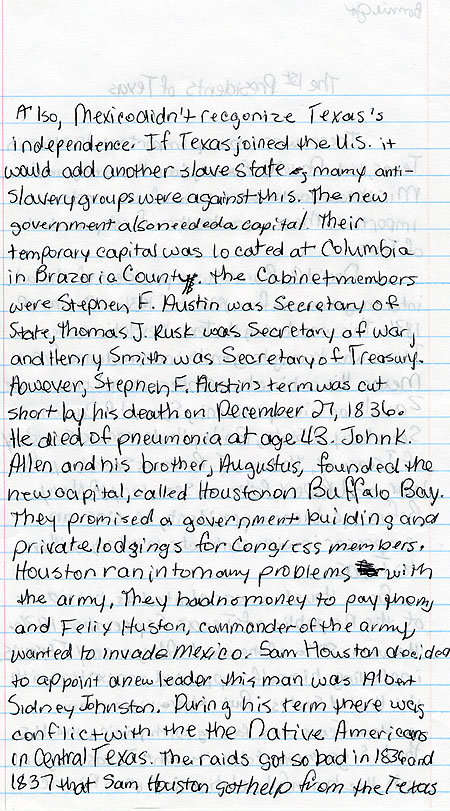 Also, Mexico didn't recgonize Texas's
independence. If Texas joined the U.S. it
would add another slave state, many anti-
slavery groups were against this. The new
government also needed a capital. Their
temporary capital was located at Columbia
in Brazoria County. The Cabinet members
were Stephen F. Austin was Secretary of
State, Thomas J. Rusk was Secretary of war,
and Henry Smith was Secretary of Treasury.
However, Stephen F. Austin's term was cut
short by his death on December 27, 1836.
He died of pneumonia at age 43. John K.
Allen and his brother, Augustus, founded the
new capital, called Houston on Buffalo Bay.
They promised a government building and
private lodgings for Congress members.
Houston ran into many problems with
the army. They had no money to pay them,
and Felix Huston, commander of the army,
wanted to invade Mexico. Sam Houston decided
to appoint a new leader this man was Albert
Sidney Johnston. During his term there was
conflict with the the Native Americans
in Central Texas. The raids got so bad in 1836 and
1837 that Sam Houston got help from the Texas